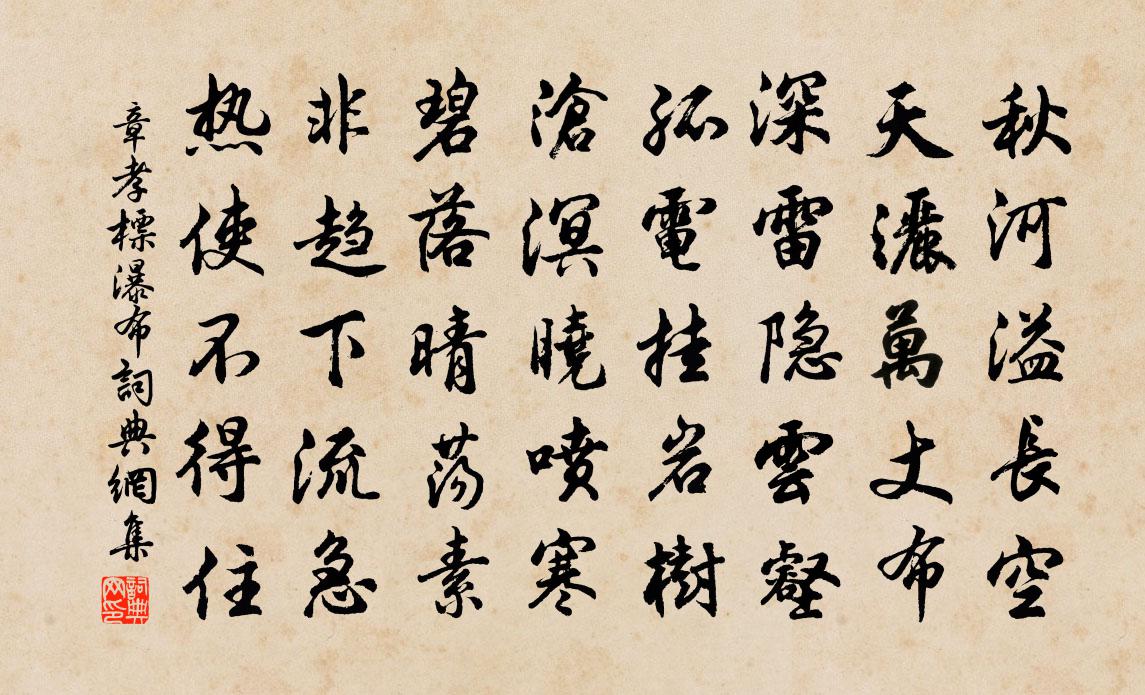 秋河溢長空
天灑萬丈布
深雷隐雲壑
孤電挂岩樹
滄溟曉噴寒
碧落晴荡素
非趋下流急
热使不得住
章孝標瀑布詞典網集
詞典
网印